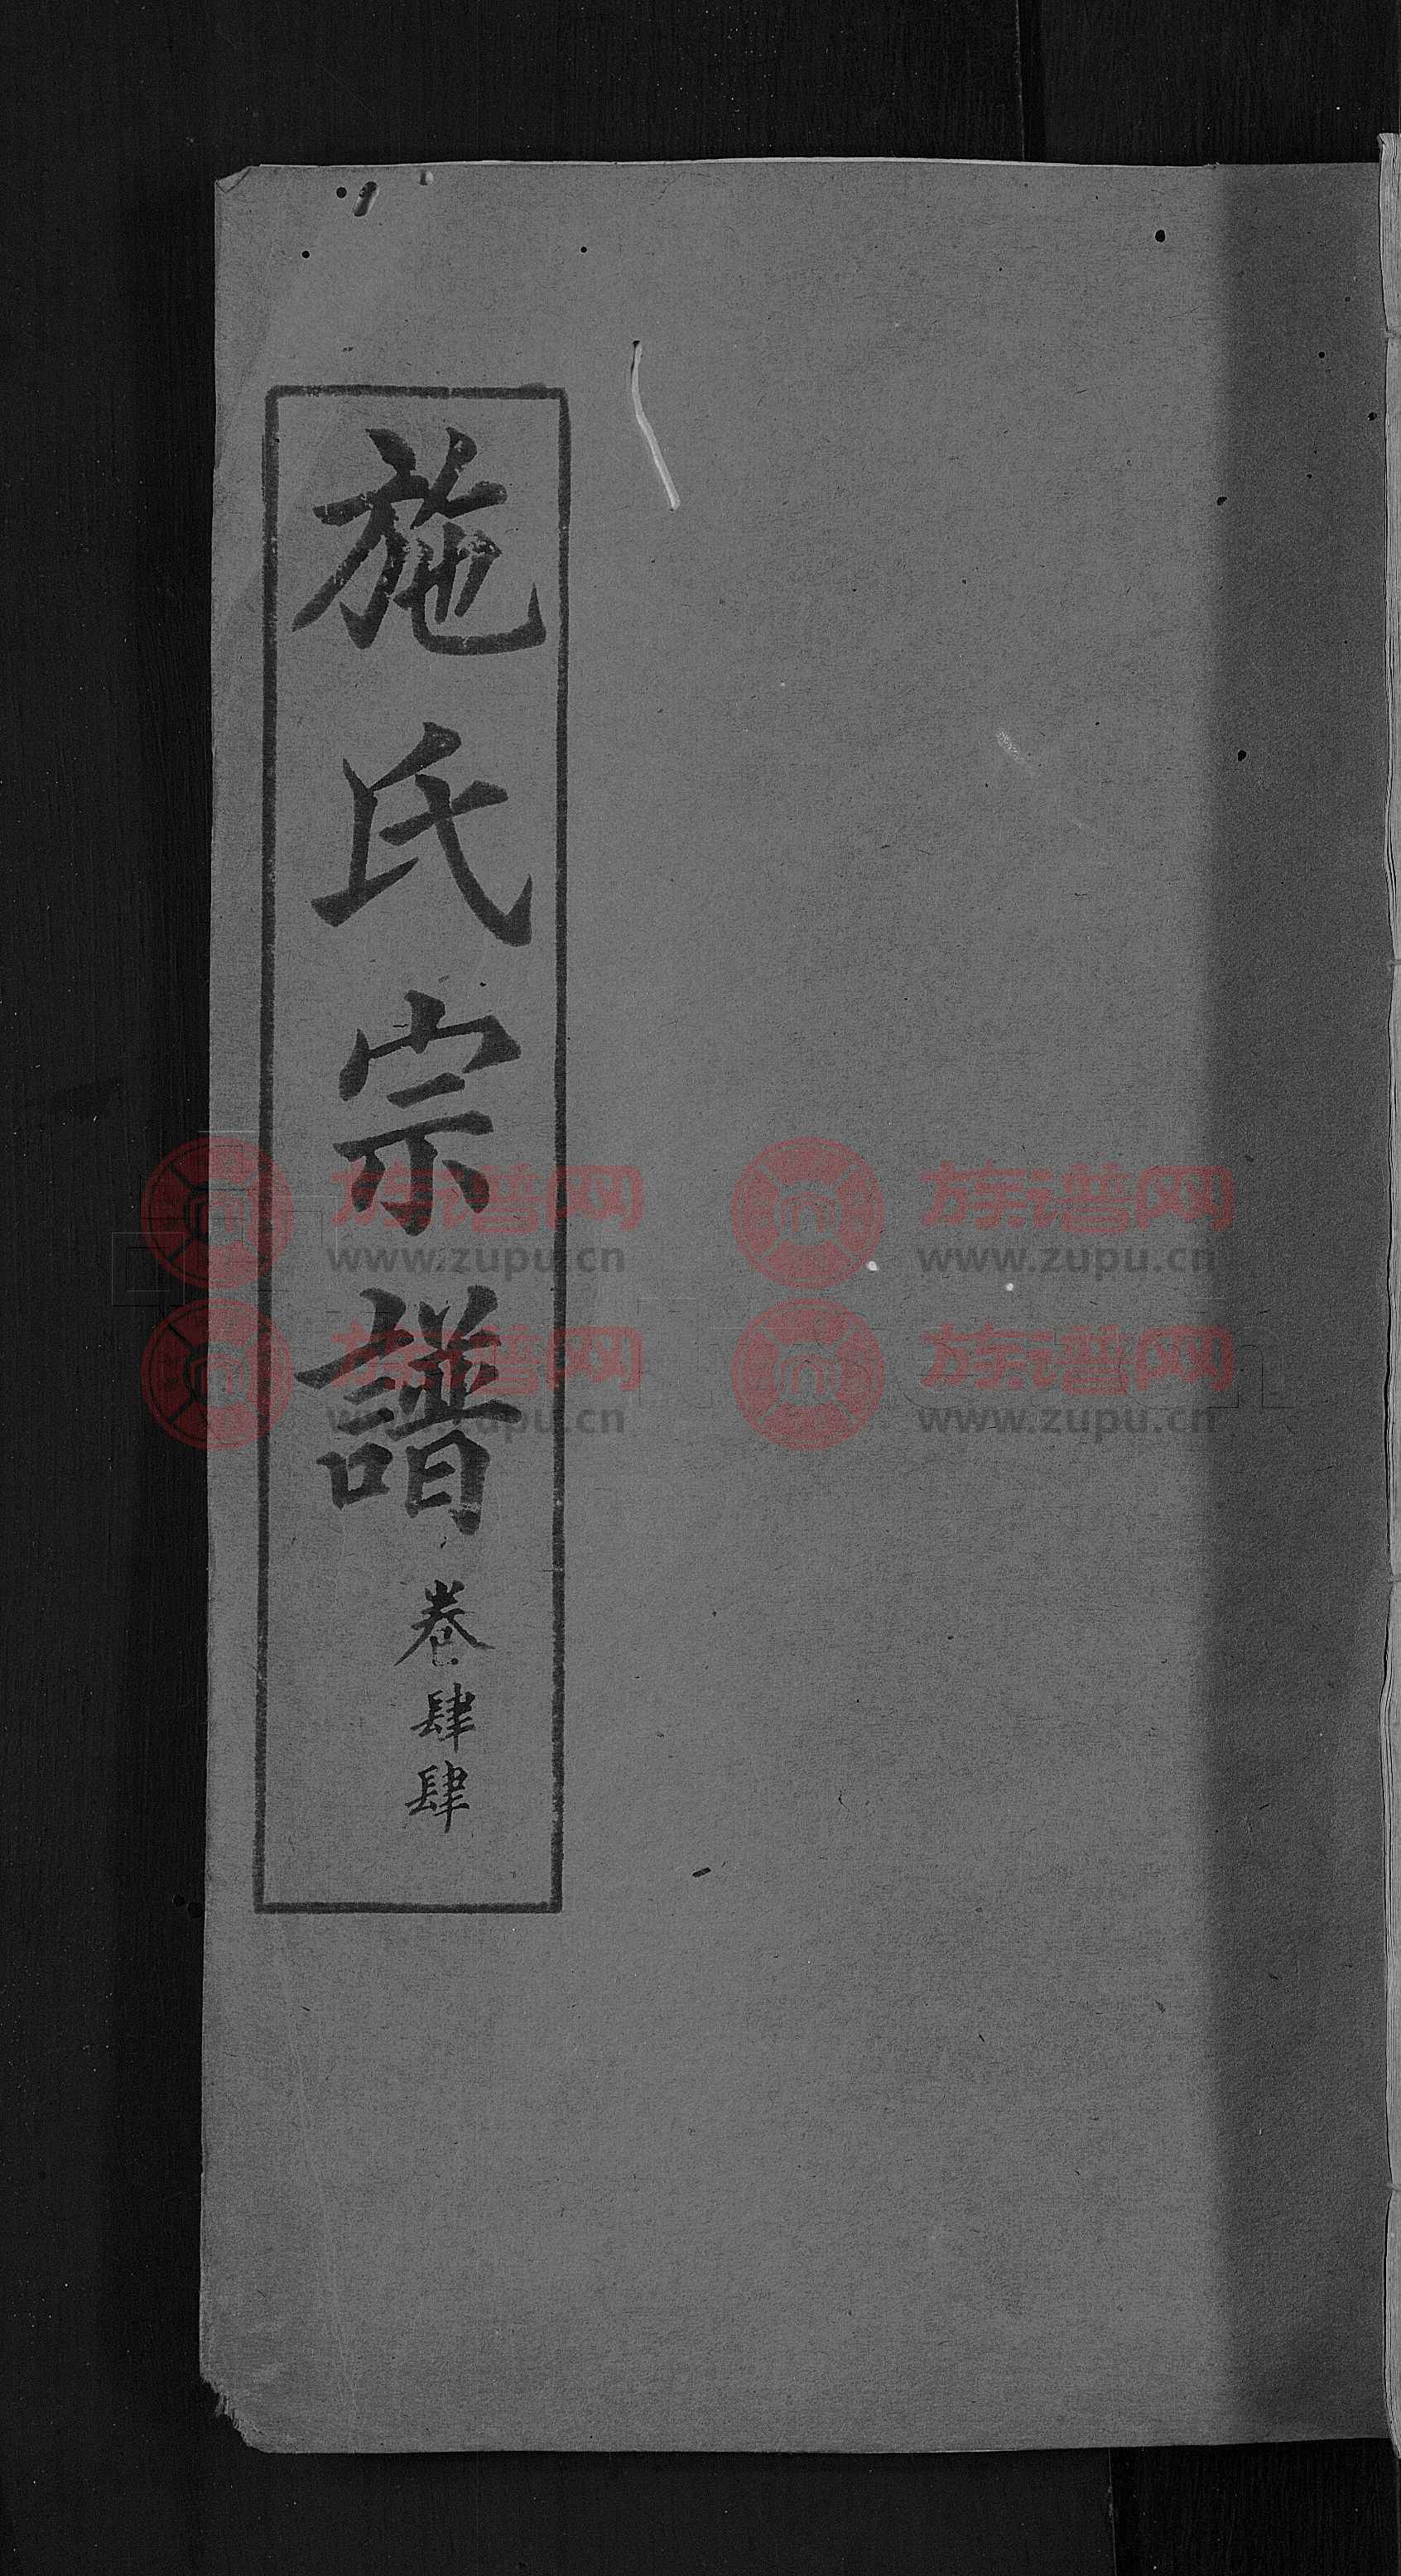 施氏宗譜
卷肆肆
族谱网
www.zupu.cn
族谱网
www.zupu.cn
族谱网
www.zupu.cn
族谱网
www.zupu.cn